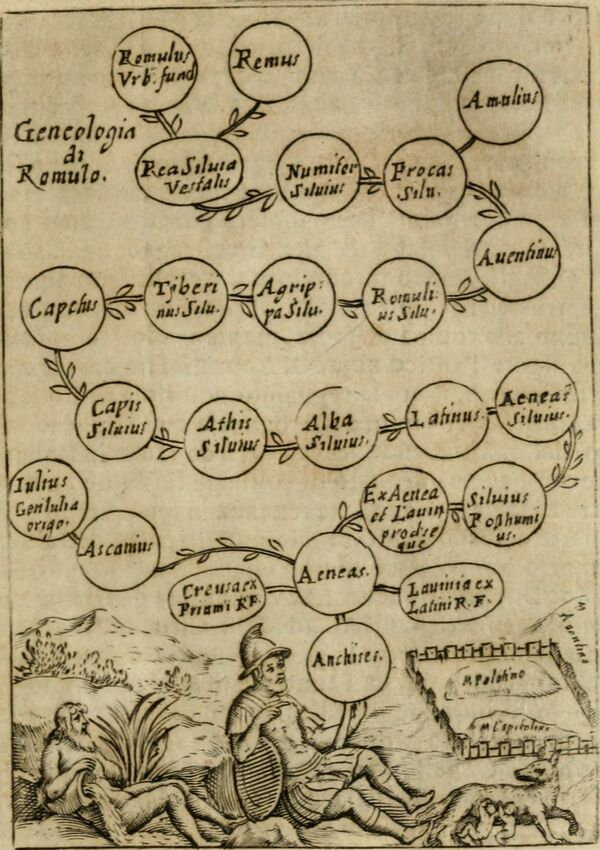 Romulus
Vrb. fund
Remus
Amulius
Geneologia
di
Romulo.
Rea Siluia
Vestalis
Numitor
Siluius
Procas
Silu.
Auentinus
Capetus
Tÿberi
nus Silu.
Agrip:
pa Silu.
Romuli:
us Silu.
Capis
Siluius
Athis
Siluius
Alba
Siluius.
Latinus.
Aeneas
Siluius.
Iulius
Gentulia
origo.
Ascanius
Ex Aenea
et Lauin
prodse
que
Siluius
Posthumi
us.
Aeneas.
Creusa ex
Priami R F.
Lauinia ex
Latini R. F.
Anchises.
M Auentino
M Palatino
M Capitolino